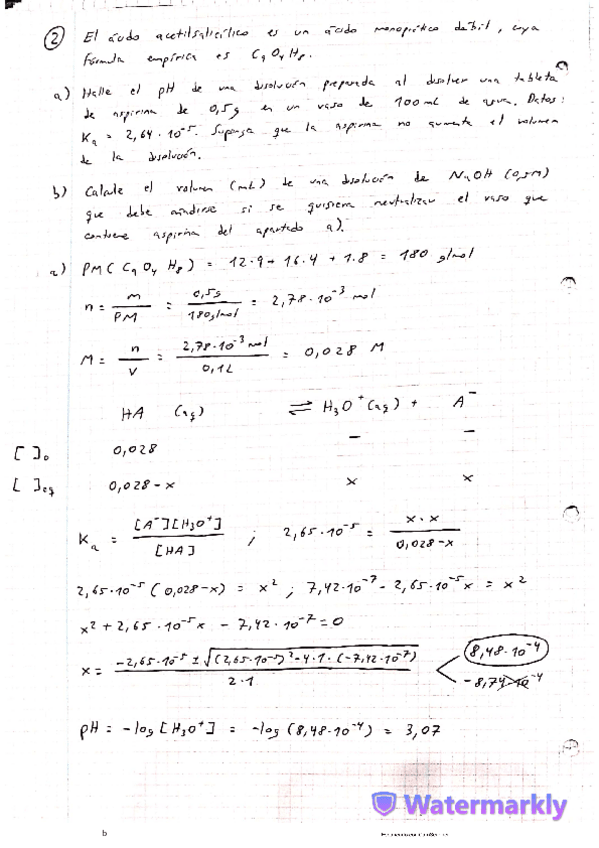 2 El ácido acetilsalicílico es un ácido monoprótico débil, cuya
fórmula empírica es C9O4H8.
a) Halle el pH de una disolución preparada al disolver una tableta
de aspirina de 0,5g en un vaso de 100 mL de agua. Datos:
Ka = 2,64·10^-5. Suponga que la aspirina no aumenta el volumen
de la disolución.
b) Calcule el volumen (mL) de una disolución de NaOH (0,5M)
que debe añadirse si se quisiera neutralizar el vaso que
contiene aspirina del apartado a).
a) PM (C9 O4 H8) = 12·9 + 16·4 + 1·8 = 180 g/mol
n = m/PM = 0,5g/180g/mol = 2,78·10^-3 mol
M = n/V = 2,78·10^-3 mol/0,1L = 0,028 M
HA (aq) ⇌ H3O+ (aq) + A-
[ ]o 0,028 - -
[ ]eq 0,028-x x x
Ka = [A-][H3O+]/[HA] ; 2,65·10^-5 = x·x/0,028-x
2,65·10^-5 (0,028-x) = x^2 ; 7,42·10^-7 - 2,65·10^-5 x = x^2
x^2 + 2,65·10^-5 x - 7,42·10^-7 = 0
x = -2,65·10^-5 ± √(2,65·10^-5)^2 - 4·1·(-7,42·10^-7)/2·1 8,48·10^-4
-8,74·10^-4
pH = -log [H3O+] = -log (8,48·10^-4) = 3,07
Watermarkly